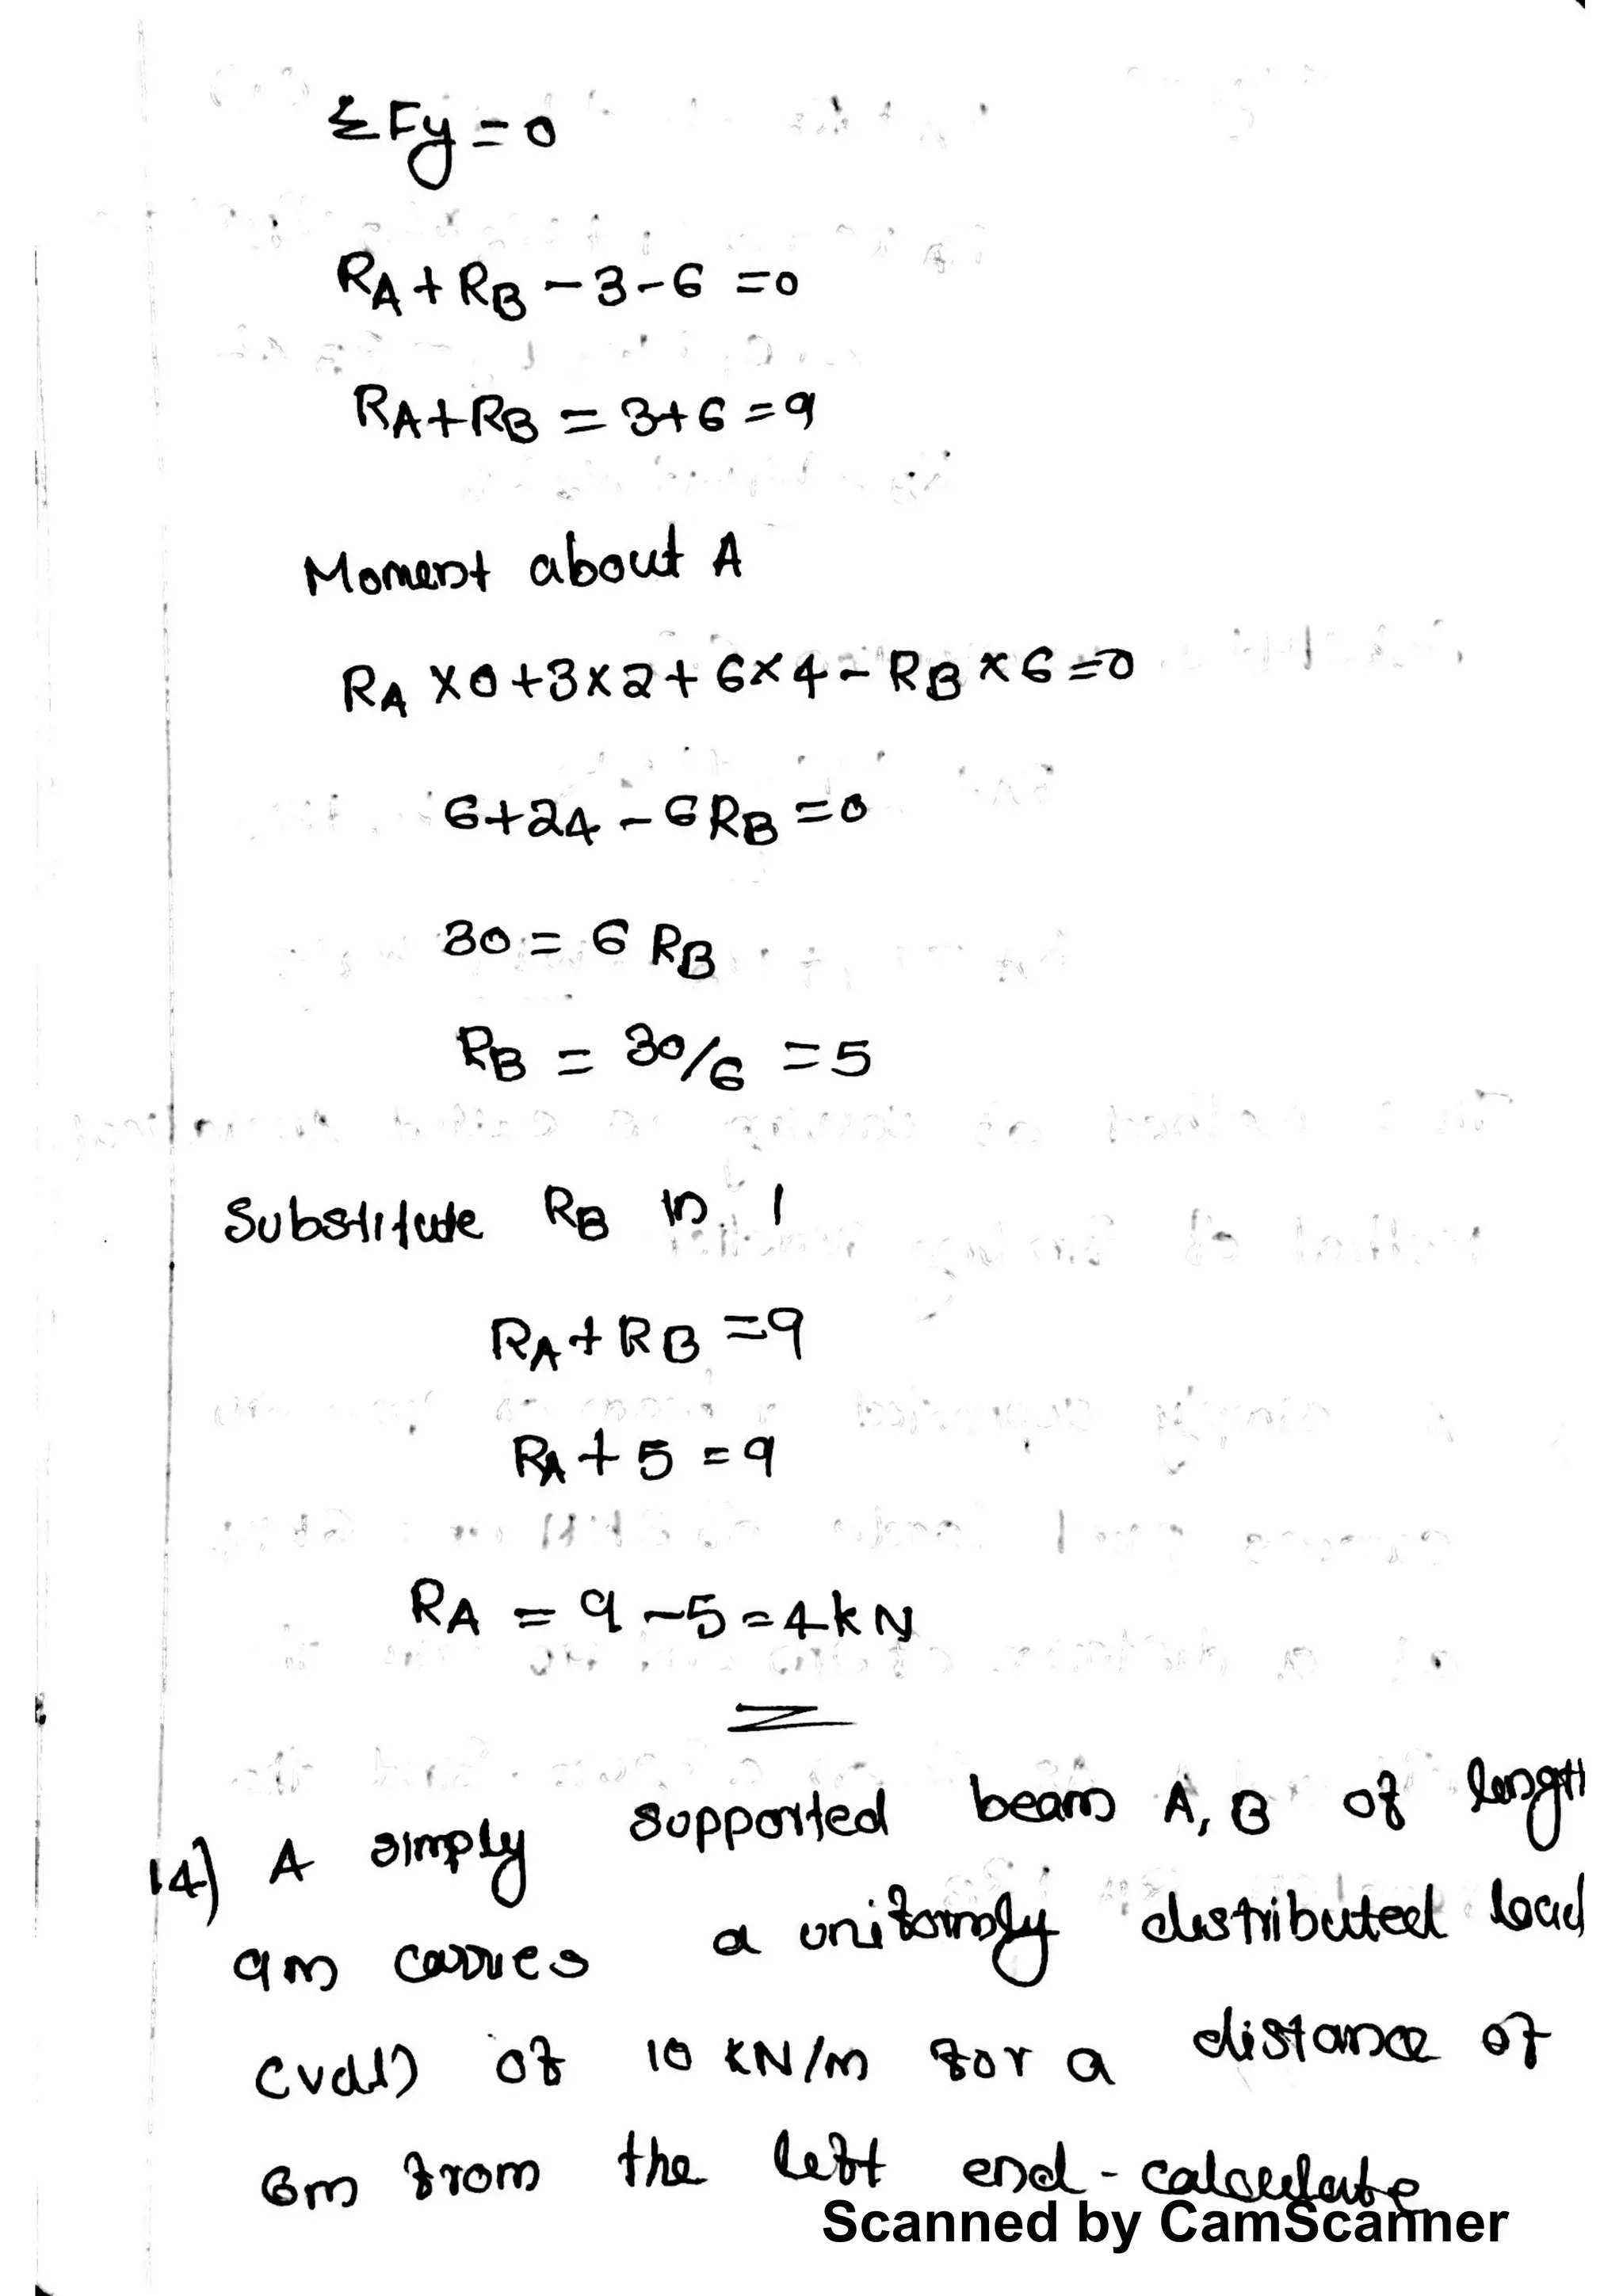 ΣFy = 0
RA + RB - 3 - 6 = 0
RA + RB = 3 + 6 = 9
Moment about A
RA × 0 + 3 × 2 + 6 × 4 - RB × 6 = 0
6 + 24 - 6RB = 0
30 = 6 RB
RB = 30/6 = 5
Substitute RB in 1
RA + RB = 9
RA + 5 = 9
RA = 9 - 5 = 4 kN
14) A simply supported beam A, B of length
9m carries a uniformly distributed load
(vdl) of 10 KN/m for a distance of
6m from the left end - calculate
Scanned by CamScanner